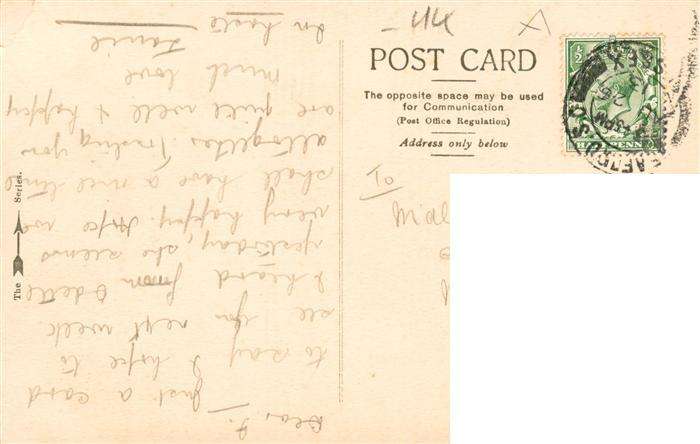 - 44 X
POST CARD
The opposite space may be used
for Communication
(Post Office Regulation)
Address only below
To
The Series.
Dear F.
Just a card
to say I hope to
see you next week.
I heard from Odette
yesterday, she seems
very happy. Hope we
shall have a nice time
altogether. Trusting you
are quite well & happy
Much love
In haste